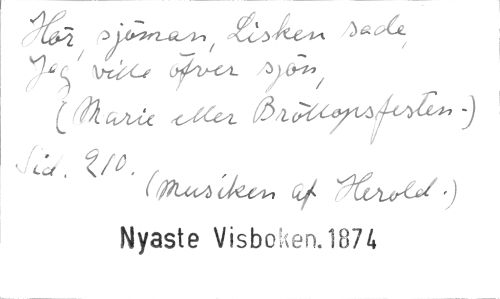 Hör, sjöman, Lisken sade,
Jag ville öfver sjön,
(Marie eller Bröllopsfesten.)
Sid. 210.
(musiken af Herold.)
Nyaste Visboken. 1874